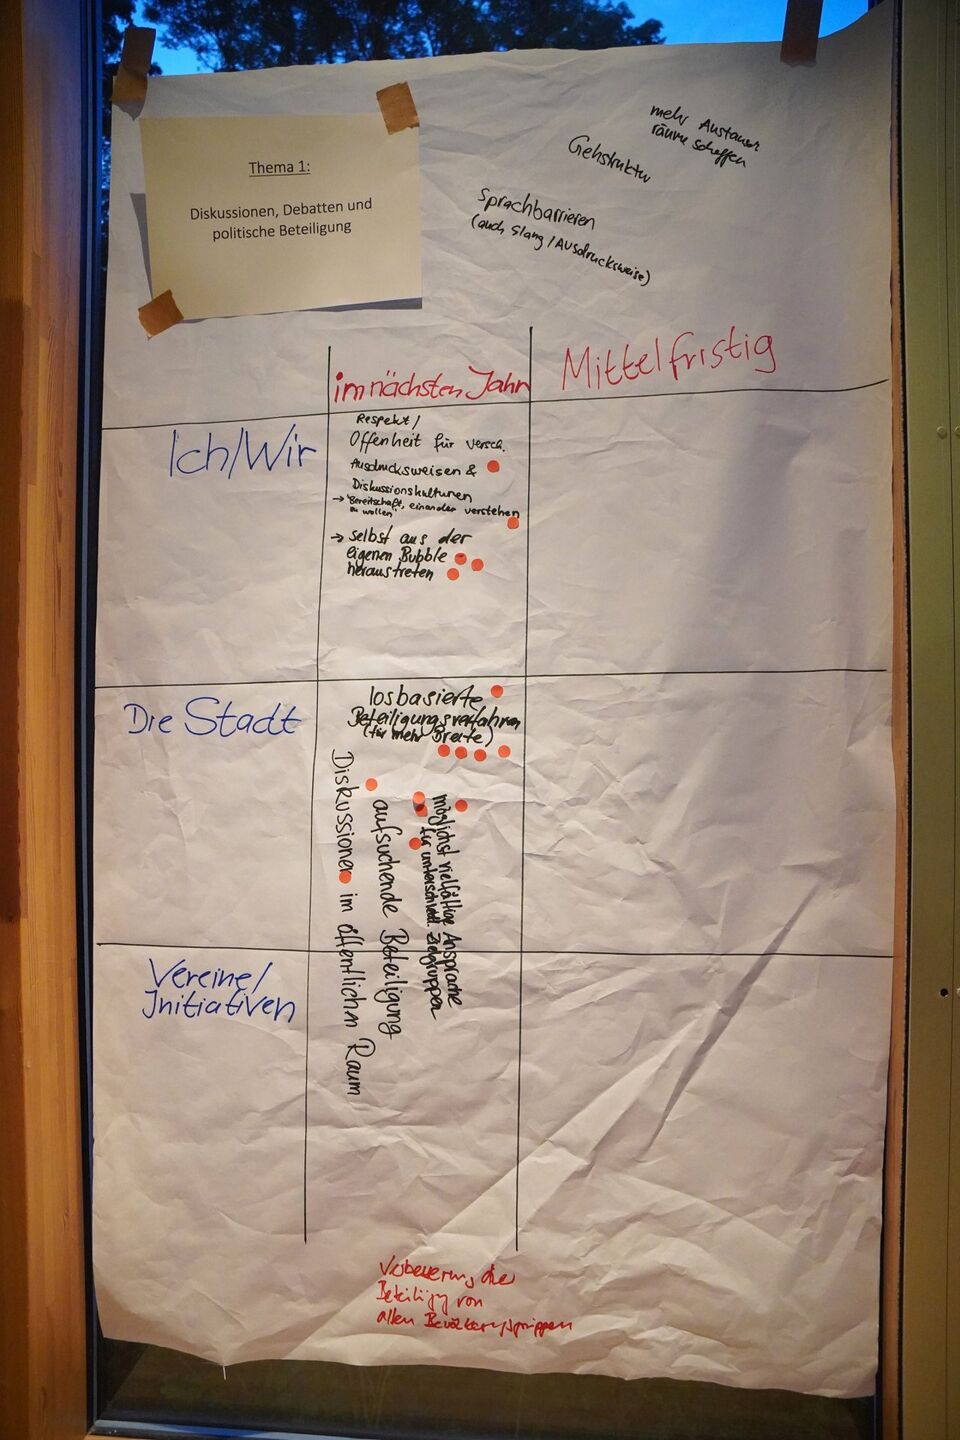 Thema 1:
Diskussionen, Debatten und
politische Beteiligung
mehr Austausch
räume schaffen
Gehstruktur
Sprachbarrieren
(auch Slang / Ausdrucksweise)
im nächsten Jahr
Mittelfristig
Ich/Wir
Respekt/
Offenheit für versch.
Ausdrucksweisen &
Diskussionskulturen
→ "Bereitschaft, einander verstehen
zu wollen"
→ selbst aus der
eigenen Bubble
heraustreten
Die Stadt
losbasierte
Beteiligungsverfahren
(für mehr Breite)
möglichst vielfältige Ansprache
für unterschiedl. Zielgruppen
aufsuchende Beteiligung
Diskussionen im öffentlichen Raum
Vereine/
Initiativen
Verbesserung der
Beteiligung von
allen Bevölkerungsgruppen